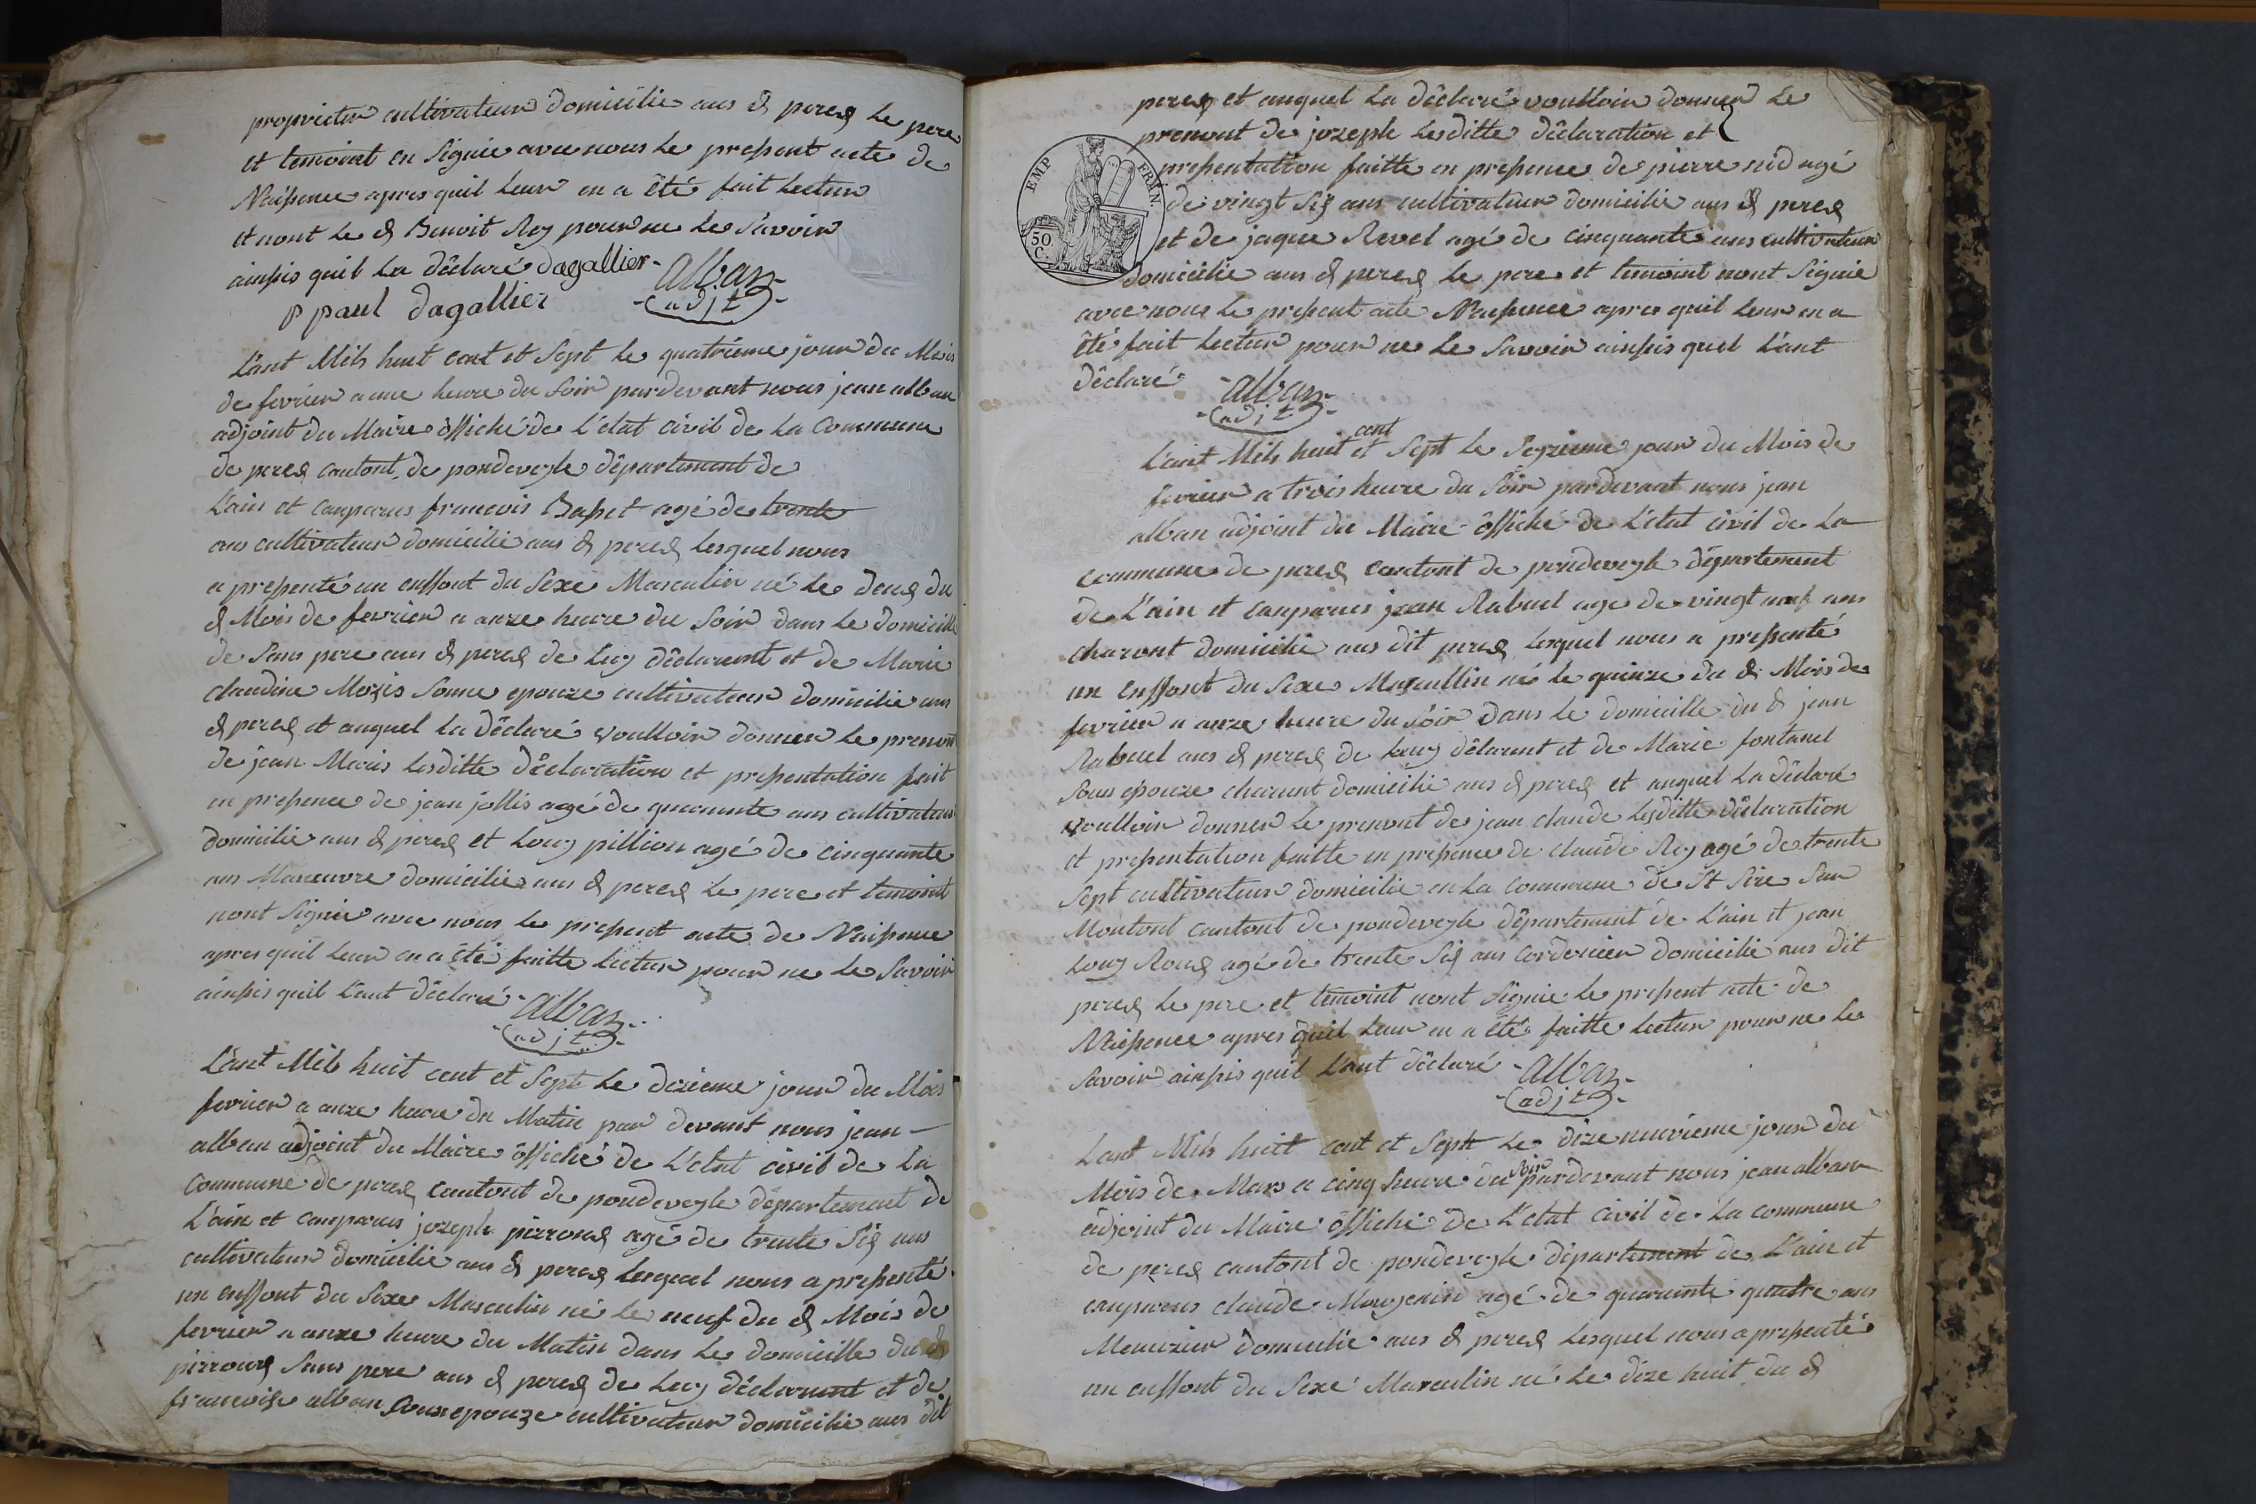 proprieter cultivateur domicilie aus d peres Le pere
et temoint en Signie avec nous Le pressent acte de
Naissence apres quil Leur en a été fait Lecture
et nont Le d Benoit Rey pour ne Le Savoir
ainssis quil La déclaré dagallier alban
p paul dagallier adjt
L'ant Mils huit cent et Sept Le quatrieme jour du Mois
de fevrier a une heure du Soir pardevant nous jean alban
adjoint du Maire offiché de L'etat civil de La Commune
de peres cantont de pondeveyle département de
L'ain et comparus francois Basset agé de trente
ans cultivateur domicilie aus d peres Lesquel nous
a pressenté un enffont du Sexe Masculin né Le deus du
d Mois de fevrier a onze heure du Soir dans Le domicille
de Sans pere aus d peres de Luy déclarent et de Marie
claudine Mozis Sonne epouze cultivateur domicilie aus
d peres et auquel La déclaré voulloir donner Le prenont
de jean Marie Lesditte déclaration et pressentation fait
en pressence de jean jollis agé de quarante ans cultivateur
domicilie aus d peres et Louy pillion agé de cinquante
ans Maneuvre domicilie aus d peres Le pere et temoint
nont Signie avec nous Le pressent acte de Naissence
apres quil Leur en a été faitte Lecture pour ne Le Savoir
ainssis quil Lant déclaré alban
adjt
L'ant Mils huit cent et Sept Le dixieme jour du Mois
fevrier a onze heure du Matin par devant nous jean
alban adjoint du Maire offiché de L'etat civil de La
Commune de peres cantont de pondeveyle département de
L'ain et comparus jozeph pirrous agé de trente Sis ans
cultivateur domicilie aus d peres Lesquel nous a pressenté
un enffont du Sexe Masculin né Le neuf du d Mois de
fevrier a onze heure du Matin dans Le domicille du d
pirrous Sans pere aus d peres de Luy déclarent et de
francoise alban Sonne epouze cultivateur domicilie aus dit
peres et auquel La déclaré voulloir donner Le
prenont de jozeph Lesditte déclaration et
pressentation faitte en pressence de pierre nid agé
de vingt Sis ans cultivateur domicilie aus d peres
et de jaque Revel agé de cinquante ans cultivateur
domicilie aus d peres Le pere et temoint nont Signie
avec nous Le pressent acte Naissence apres quil Leur en a
été fait Lecture pour ne Le Savoir ainssis quil L'ant
déclaré alban
adjt
EMP FRAN.
50
C.
cent
L'ant Mils huit et Sept Le Sezieme jour du Mois de
fevrier a trois heure du Soir pardevant nous jean
alban adjoint du Maire offiché de L'etat civil de La
commune de peres cantont de pondeveyle département
de L'ain et comparus jean Rabuel age de vingt neuf ans
charont domicilié aus dit peres Lesquel nous a pressenté
un enffont du Sexe Masculin né le quinze du d Mois de
fevrier a onze heure du Soir dans Le domicille du d jean
Rabuel aus d peres de Luy déclarent et de Marie fontanel
Sous epouze charont domicilié aus d peres et auquel La déclaré
voulloir donner Le prenont de jean claude Lesditte déclaration
et pressentation faitte en pressence de claude Rey agé de trente
Sept cultivateur domicilie en La commune de St Sire Sur
Montont cantont de pondeveyle département de L'ain et jean
Louy Rous agé de trente Sis ans cordonier domicilié aus dit
peres Le pere et temoint nont Signie Le pressent acte de
Naissence apres quil Leur en a été faitte Lecture pour ne Le
Savoir ainssis quil L'ant déclaré alban
adjt
L'ant Mils huit cent et Sept Le dize neuvieme jour du
Soir
Mois de Mars a cinq heure du pardevant nous jean alban
adjoint du Maire offiché de L'etat civil de La commune
de peres cantont de pondeveyle département de L'ain et
comparus claude Maugenin agé de quarante quatre ans
Meunier domicilie aus d peres Lesquel nous a pressenté
un enffont du Sexe Masculin né Le dize huit du d